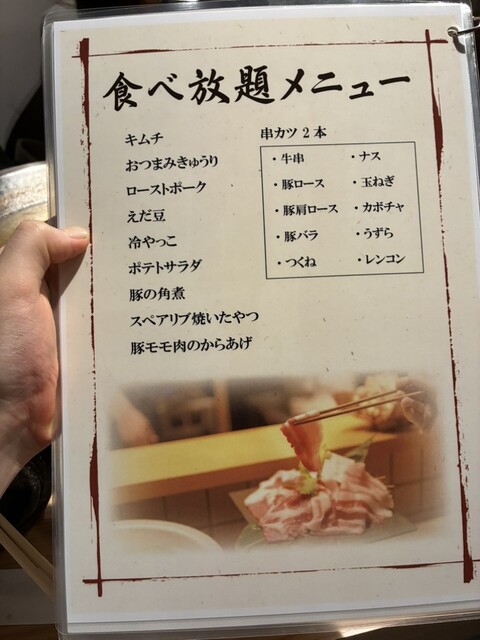 食べ放題メニュー
キムチ
おつまみきゅうり
ローストポーク
えだ豆
冷やっこ
ポテトサラダ
豚の角煮
スペアリブ焼いたやつ
豚モモ肉のからあげ
串カツ 2 本
・牛串
・豚ロース
・豚肩ロース
・豚バラ
・つくね
・ナス
・玉ねぎ
・カボチャ
・うずら
・レンコン